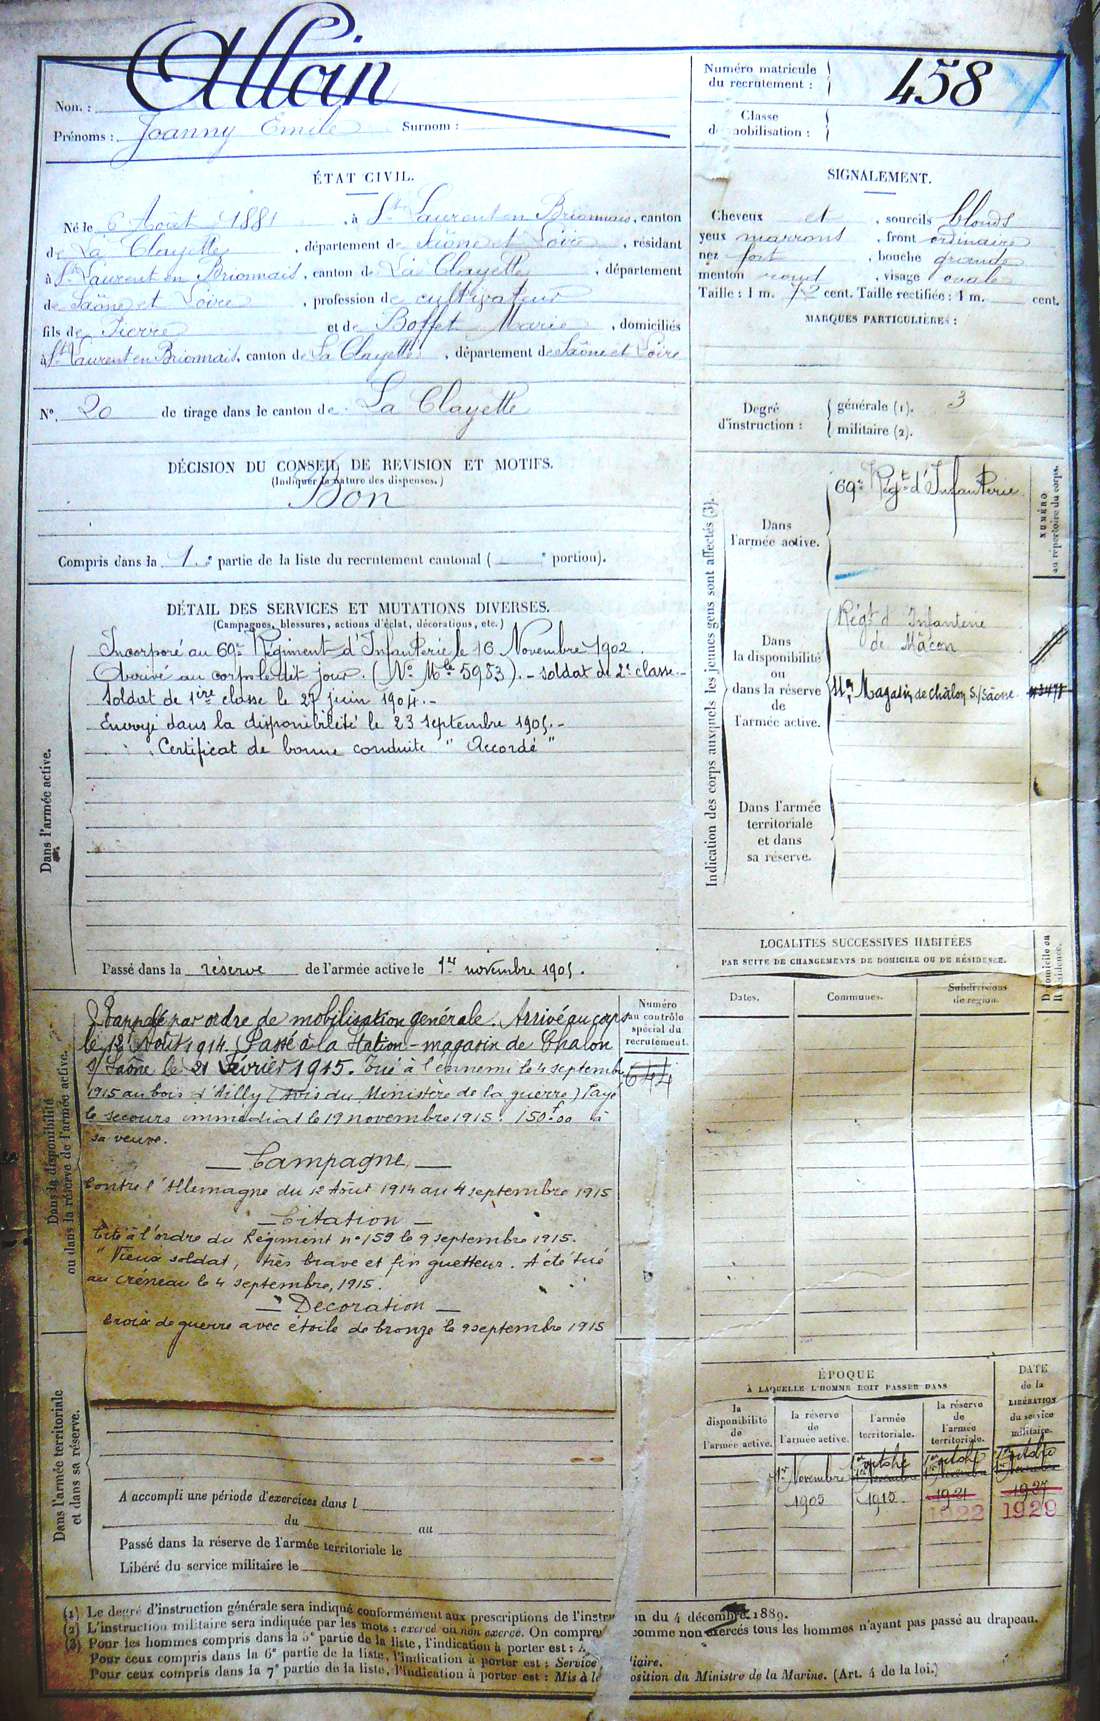 Nom : Alloin
Prénoms : Joanny Emile Surnom :
Numéro matricule du recrutement : 458
Classe de mobilisation :
ÉTAT CIVIL.
Né le 6 Août 1881, à St Laurent en Brionnais, canton
de La Clayette, département de Saône et Loire, résidant
à St Laurent en Brionnais, canton de La Clayette, département
de Saône et Loire, profession de cultivateur
fils de Pierre et de Boffet Marie, domiciliés
à St Laurent en Brionnais, canton de La Clayette, département de Saône et Loire
N° 20 de tirage dans le canton de La Clayette
SIGNALEMENT.
Cheveux et, sourcils blonds
yeux marrons, front ordinaire
nez fort, bouche grande
menton rond, visage ovale
Taille : 1 m. 72 cent. Taille rectifiée : 1 m. cent.
MARQUES PARTICULIÈRES :
Degré d'instruction : générale (1). 3
militaire (2).
DÉCISION DU CONSEIL DE REVISION ET MOTIFS.
(Indiquer la nature des dispenses.)
Bon
Compris dans la 1.e partie de la liste du recrutement cantonal ( e portion).
DÉTAIL DES SERVICES ET MUTATIONS DIVERSES.
(Campagnes, blessures, actions d'éclat, décorations, etc.)
Dans l'armée active.
Incorporé au 69e Régiment d'Infanterie le 16 Novembre 1902.
Arrivé au corps le dit jour. (No Mle 5983). - soldat de 2e classe.-
Soldat de 1ère classe le 27 juin 1904.-
Envoyé dans la disponibilité le 23 septembre 1905.-
Certificat de bonne conduite " Accordé "
Passé dans la réserve de l'armée active le 1er novembre 1905.
Indication des corps auxquels les jeunes gens sont affectés (3).
NUMÉRO au répertoire du corps.
Dans l'armée active.
69e Régt d'Infanterie
Dans la disponibilité ou dans la réserve de l'armée active.
Régt d'Infanterie
de Mâcon
Magasin de Châlon s/Saône
Dans l'armée territoriale et dans sa réserve.
Dans la disponibilité ou dans la réserve de l'armée active.
Rappelé par ordre de mobilisation générale. Arrivé au corps
le 12 Août 1914. Passé à la Station-magasin de Chalon
s/ Saône le 21 Février 1915. Tué à l'ennemi le 4 septembre
1915 au bois d'Ailly (avis du Ministère de la guerre) Payé
le secours immédiat le 19 novembre 1915. 150f00 à
sa veuve.
— Campagne —
Contre l'Allemagne du 12 Août 1914 au 4 septembre 1915
— Citation —
Cité à l'ordre du Régiment n° 159 le 9 septembre 1915.
" Vieux soldat, très brave et fin guetteur. A été tué
au créneau le 4 septembre, 1915.
— Décoration —
Croix de guerre avec étoile de bronze le 9 septembre 1915
Numéro au contrôle spécial du recrutement.
644
LOCALITÉS SUCCESSIVES HABITÉES
PAR SUITE DE CHANGEMENTS DE DOMICILE OU DE RÉSIDENCE.
Dates. Communes. Subdivisions de région. Domicile ou Résidence.
Dans l'armée territoriale et dans sa réserve.
A accompli une période d'exercices dans l
du au
Passé dans la réserve de l'armée territoriale le
Libéré du service militaire le
ÉPOQUE
À LAQUELLE L'HOMME DOIT PASSER DANS
DATE de la LIBÉRATION du service militaire.
la disponibilité de l'armée active. la réserve de l'armée active. l'armée territoriale. la réserve de l'armée territoriale.
1er Novembre 1er octobre 1er octobre 1er octobre
1er Novembre 1er Novembre 1er Novembre
1905 1915 1921 1927
1922 1929
(1) Le degré d'instruction générale sera indiqué conformément aux prescriptions de l'instru on du 4 décembre 1889.
(2) L'instruction militaire sera indiquée par les mots : exercé ou non exercé. On compre comme non exercés tous les hommes n'ayant pas passé au drapeau.
(3) Pour les hommes compris dans la 5e partie de la liste, l'indication à porter est : A liaire.
Pour ceux compris dans la 6e partie de la liste, l'indication à porter est : Service
Pour ceux compris dans la 7e partie de la liste, l'indication à porter est : Mis à la position du Ministre de la Marine. (Art. 4 de la loi.)